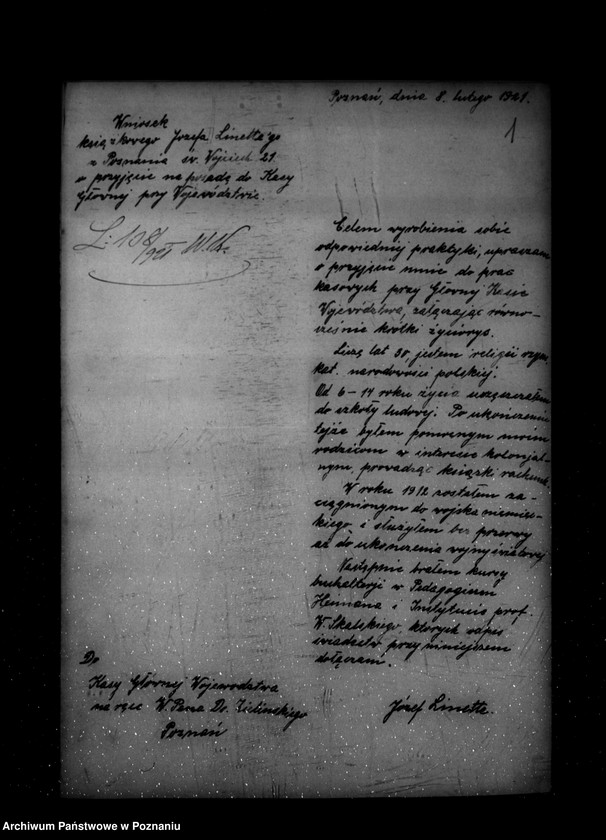 Poznań, dnia 8. lutego 1921.
1
Wniosek
książkowego Józefa Linette'go
z Poznania św. Wojciech 21
o przyjęcie na posadę do Kasy
Głównej przy Województwie.
Celem wyrobienia sobie
odpowiedniej praktyki, upraszam
o przyjęcie mnie do prac
kasowych przy Głównej Kasie
Województwa, załączając równo-
cześnie krótki życiorys.
Liczę lat 30, jestem religii rzym.
kat. narodowości polskiej.
Od 6 – 14 roku życia uczęszczałem
do szkoły ludowej. Po ukończeniu
tejże byłem pomocnym moim
rodzicom w interesie kolonjal-
nym, prowadząc książki rachunk.
W roku 1912 zostałem za-
ciągnionym do wojska niemiec-
kiego i służyłem bez przerwy
aż do ukończenia wojny światowej
Następnie brałem kursy
buchalterji w Pedagogium
Hermana i Instytucie prof.
W. Skalskiego, których
świadectw przy niniejszem
dołączam.
Józef Linette.
Do
Kasy Głównej Województwa
na ręce W. Pana Dr. Zielińskiego
Poznań
Archiwum Państwowe w Poznaniu